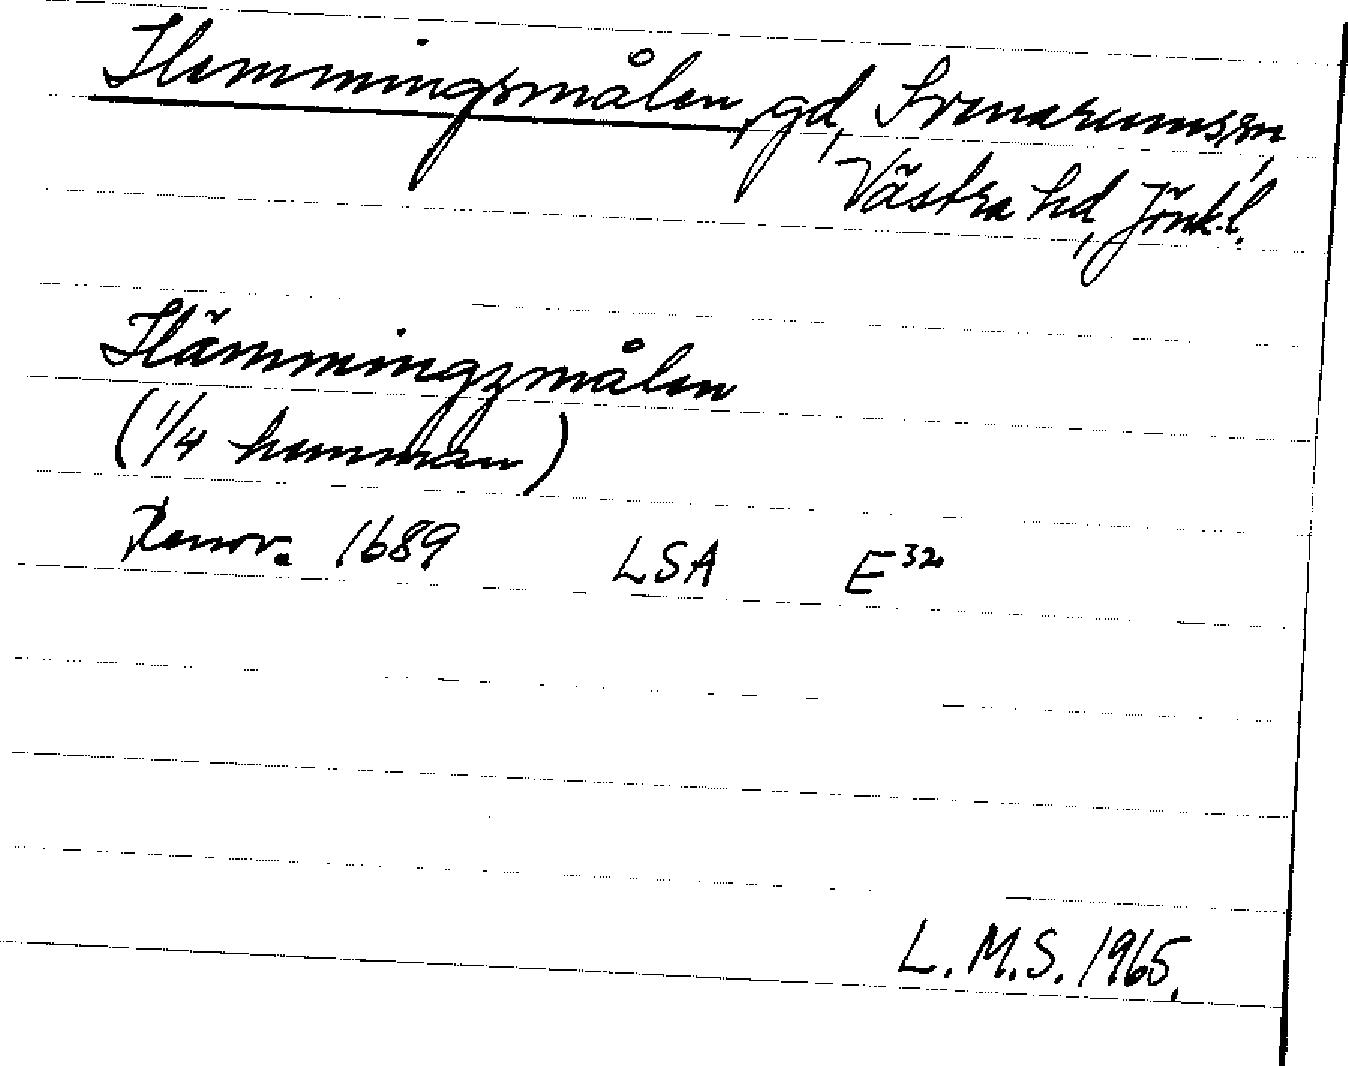 Hemmingsmålen, gd, Svenarums sn,
Västra hd, Jönk.l.
Hämmingzmålen
(1/4 hemman)
Renov. 1689 LSA E³²
L.M.S. 1965.